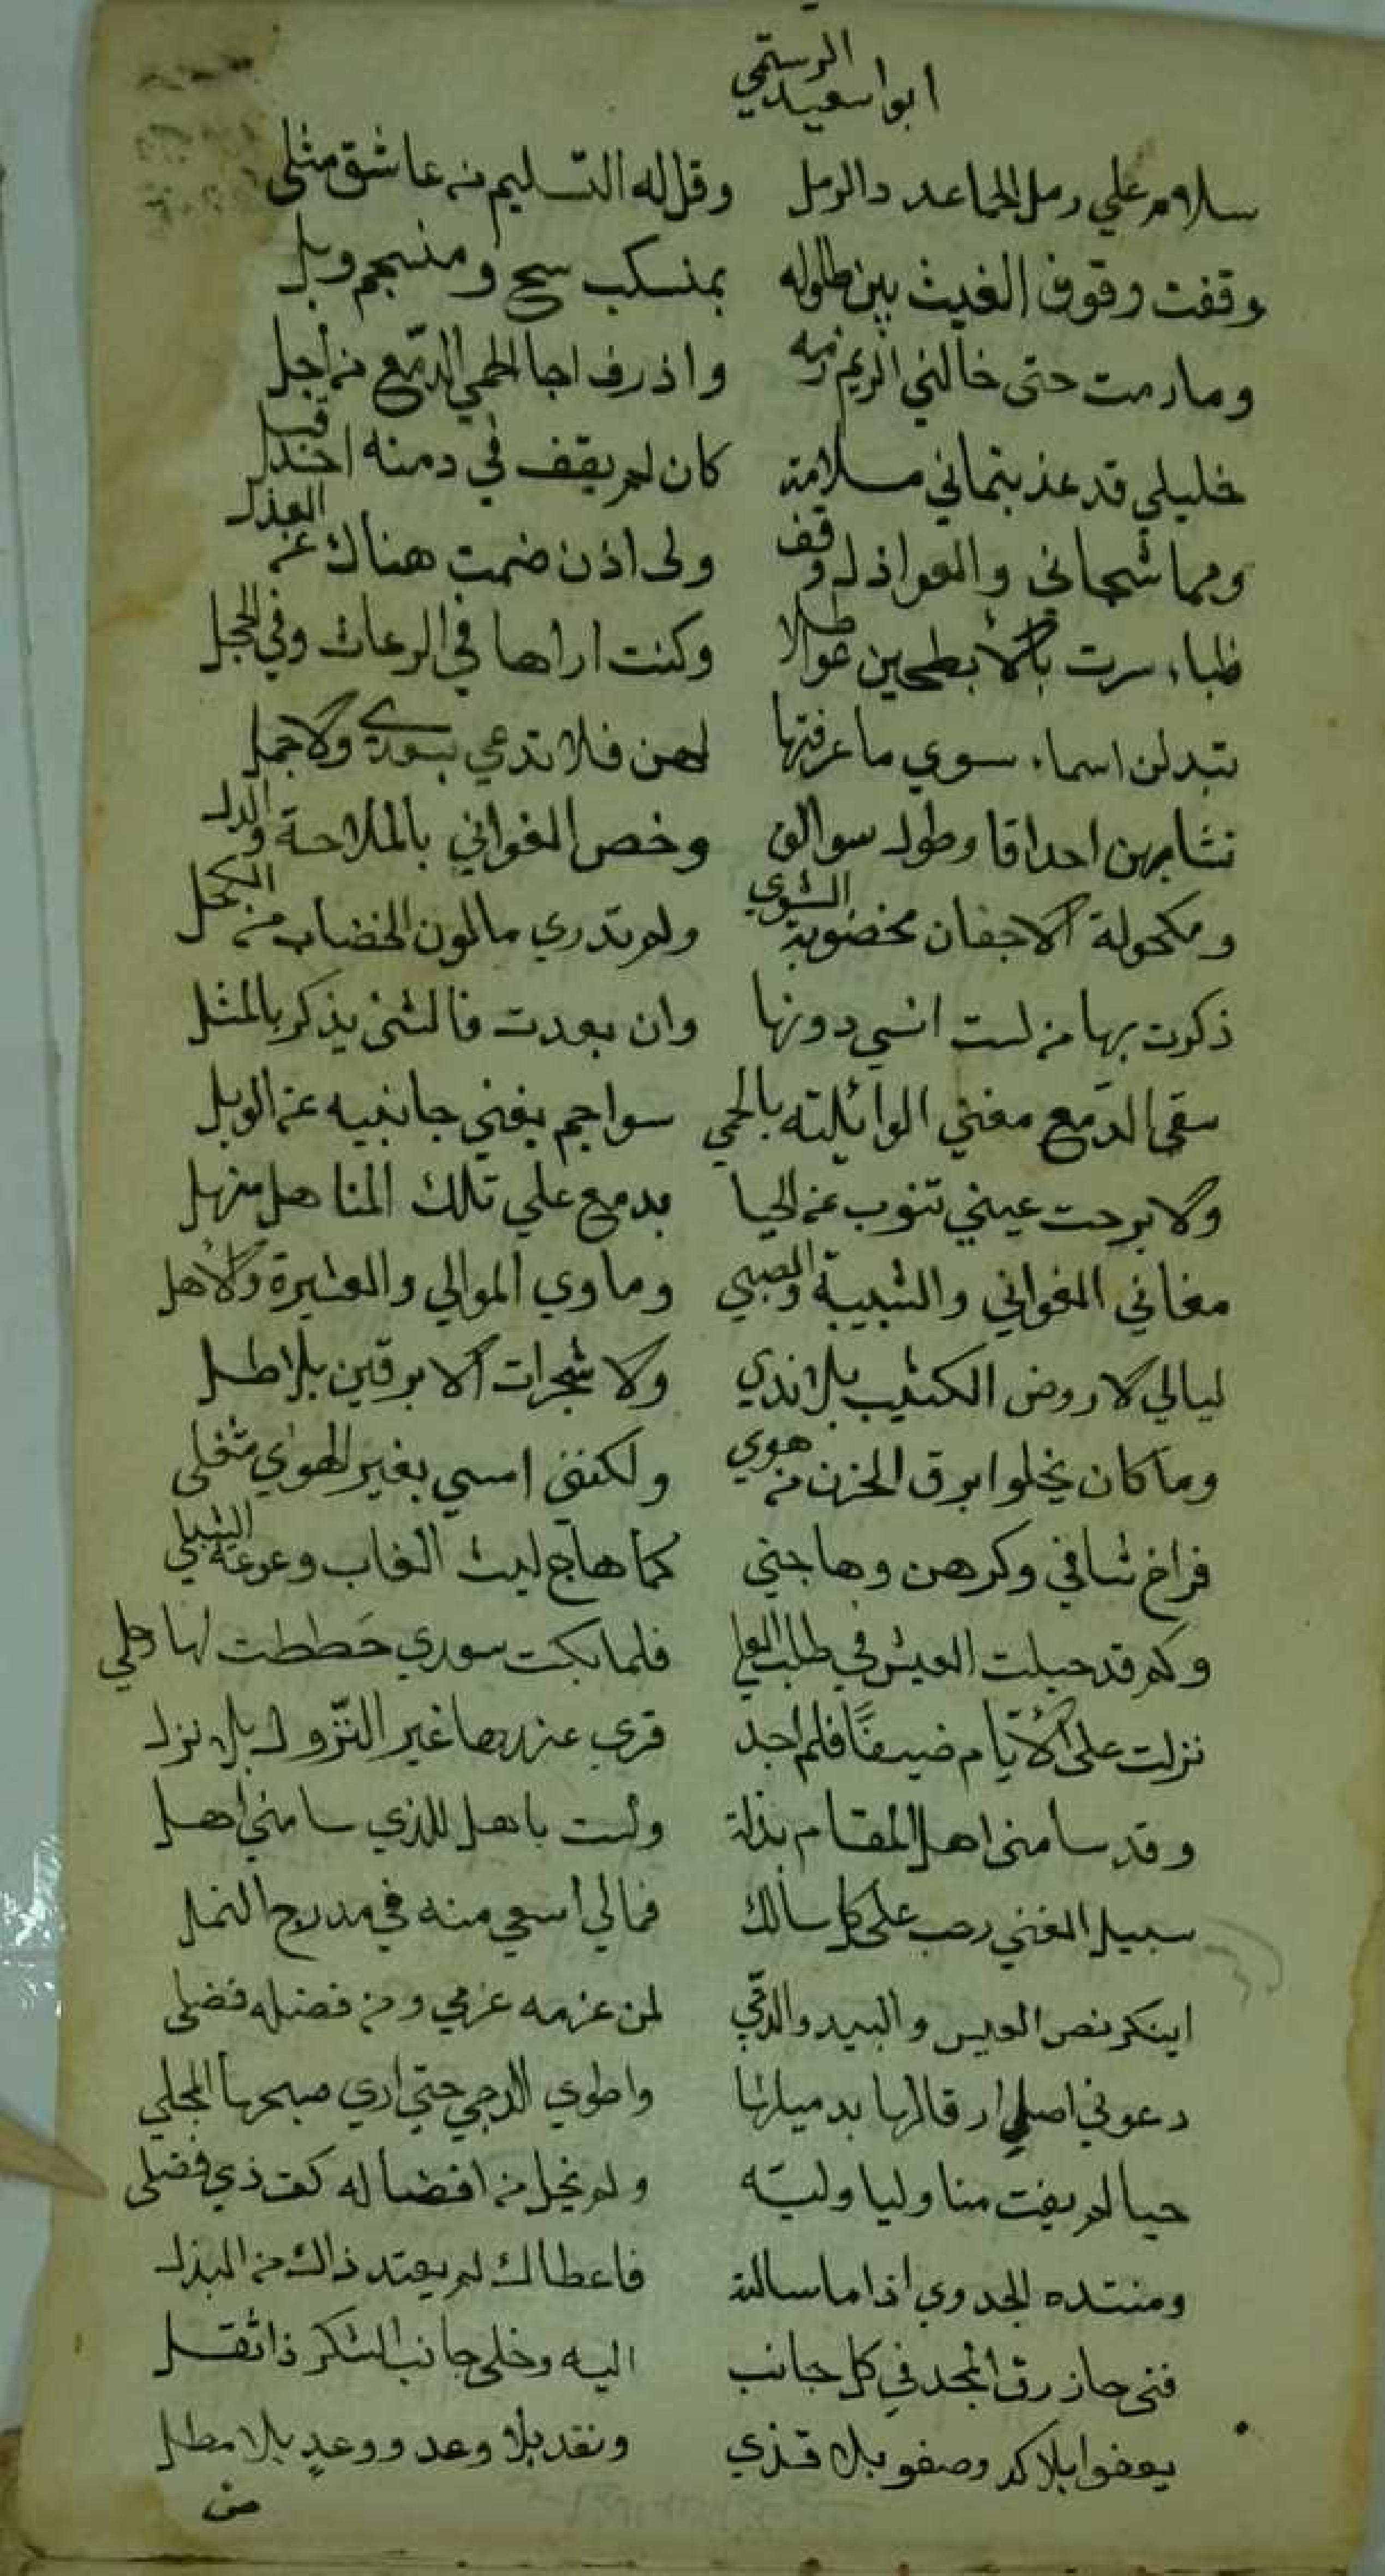 ابوا سعيد الرستمي
سلام علي رمل الحما عدد الرمل وقل له التسليم من عاشق مثلي
وقفت وقوف الغيث بين طلوله بمنسكب سح ومنسجم وبل
ومارمت حتى خالني الريم رمه واذرف اجا الحمي الدمع من اجل
خليلي قد عذبتماني ملامة كان لم يقف في دمنه احد قبل
ومما شجاني والعواذل وقف ولى اذن ضمت هناك عن العذل
ظباء سرت بالأبطحين عواطلا وكنت اراها في الرعاث وفي الحجل
تبدلن اسماء سوي ما عرفتها لهن فلا تدعي بسعدي ولا جمل
تشابهن احداقا وطول سوالف وخص الغواني بالملاحة والدل
ومكحولة الاجفان مخضوبة الشوي ولم تدري مالون الخضاب من الكحل
ذكرت بها من لست انسي دونها وان بعدت فالشئ يذكر بالمثل
سقى الدمع مغني الوائلته بالحمي سواجم يغني جانبيه عن الوبل
ولا برحت عيني تنوب عن الحيا بدمع علي تلك المناهل منهل
مغاني الغواني والشبيبة والصبي وماوي الموالي والعشيرة والأهل
ليالي لا روض الكثيب بلا ندي ولا شجرات الابرقين بلا طل
وما كان يخلوا ابرق الحزن من هوي ولكنني امسي بغير الهوي شغلى
فراخ شاقني وكرهن وهاجني كما هاج ليث الغاب وعوعة الشبلي
وكم قد حملت العيش في طلب العلي فلما بكت سوري حططت لها رحلي
نزلت على الأيام ضيفًا فلم اجد قري عندها غير النزول بلا نزل
وقد سامني اهل المقام بذلة ولست باهل للذي سامني اهل
سبيل الغني رحب على كل سالك فمالي اسعي منه في مدرج النمل
اينكر نص العيس والبيد والدجي لمن عزمه عزمي ومن فضله فضلى
دعوني اصلي ارقالها بدميلها واطوي الدجي حتى اري صبحها المجلي
حيا لم يفت منا وليا وليه ولم يخل من افضاله كف ذي فضلى
ومنتده الجدوي اذا ما سالته فاعطاك لم يعتد ذاك من البذل
فتى حاز رق المجد في كل جانب اليه وخلى جانب الشكر ذا ثقل
يعفوا بلا كد وصفو بلا قذي ونقد بلا وعد ووعد بلا مطل